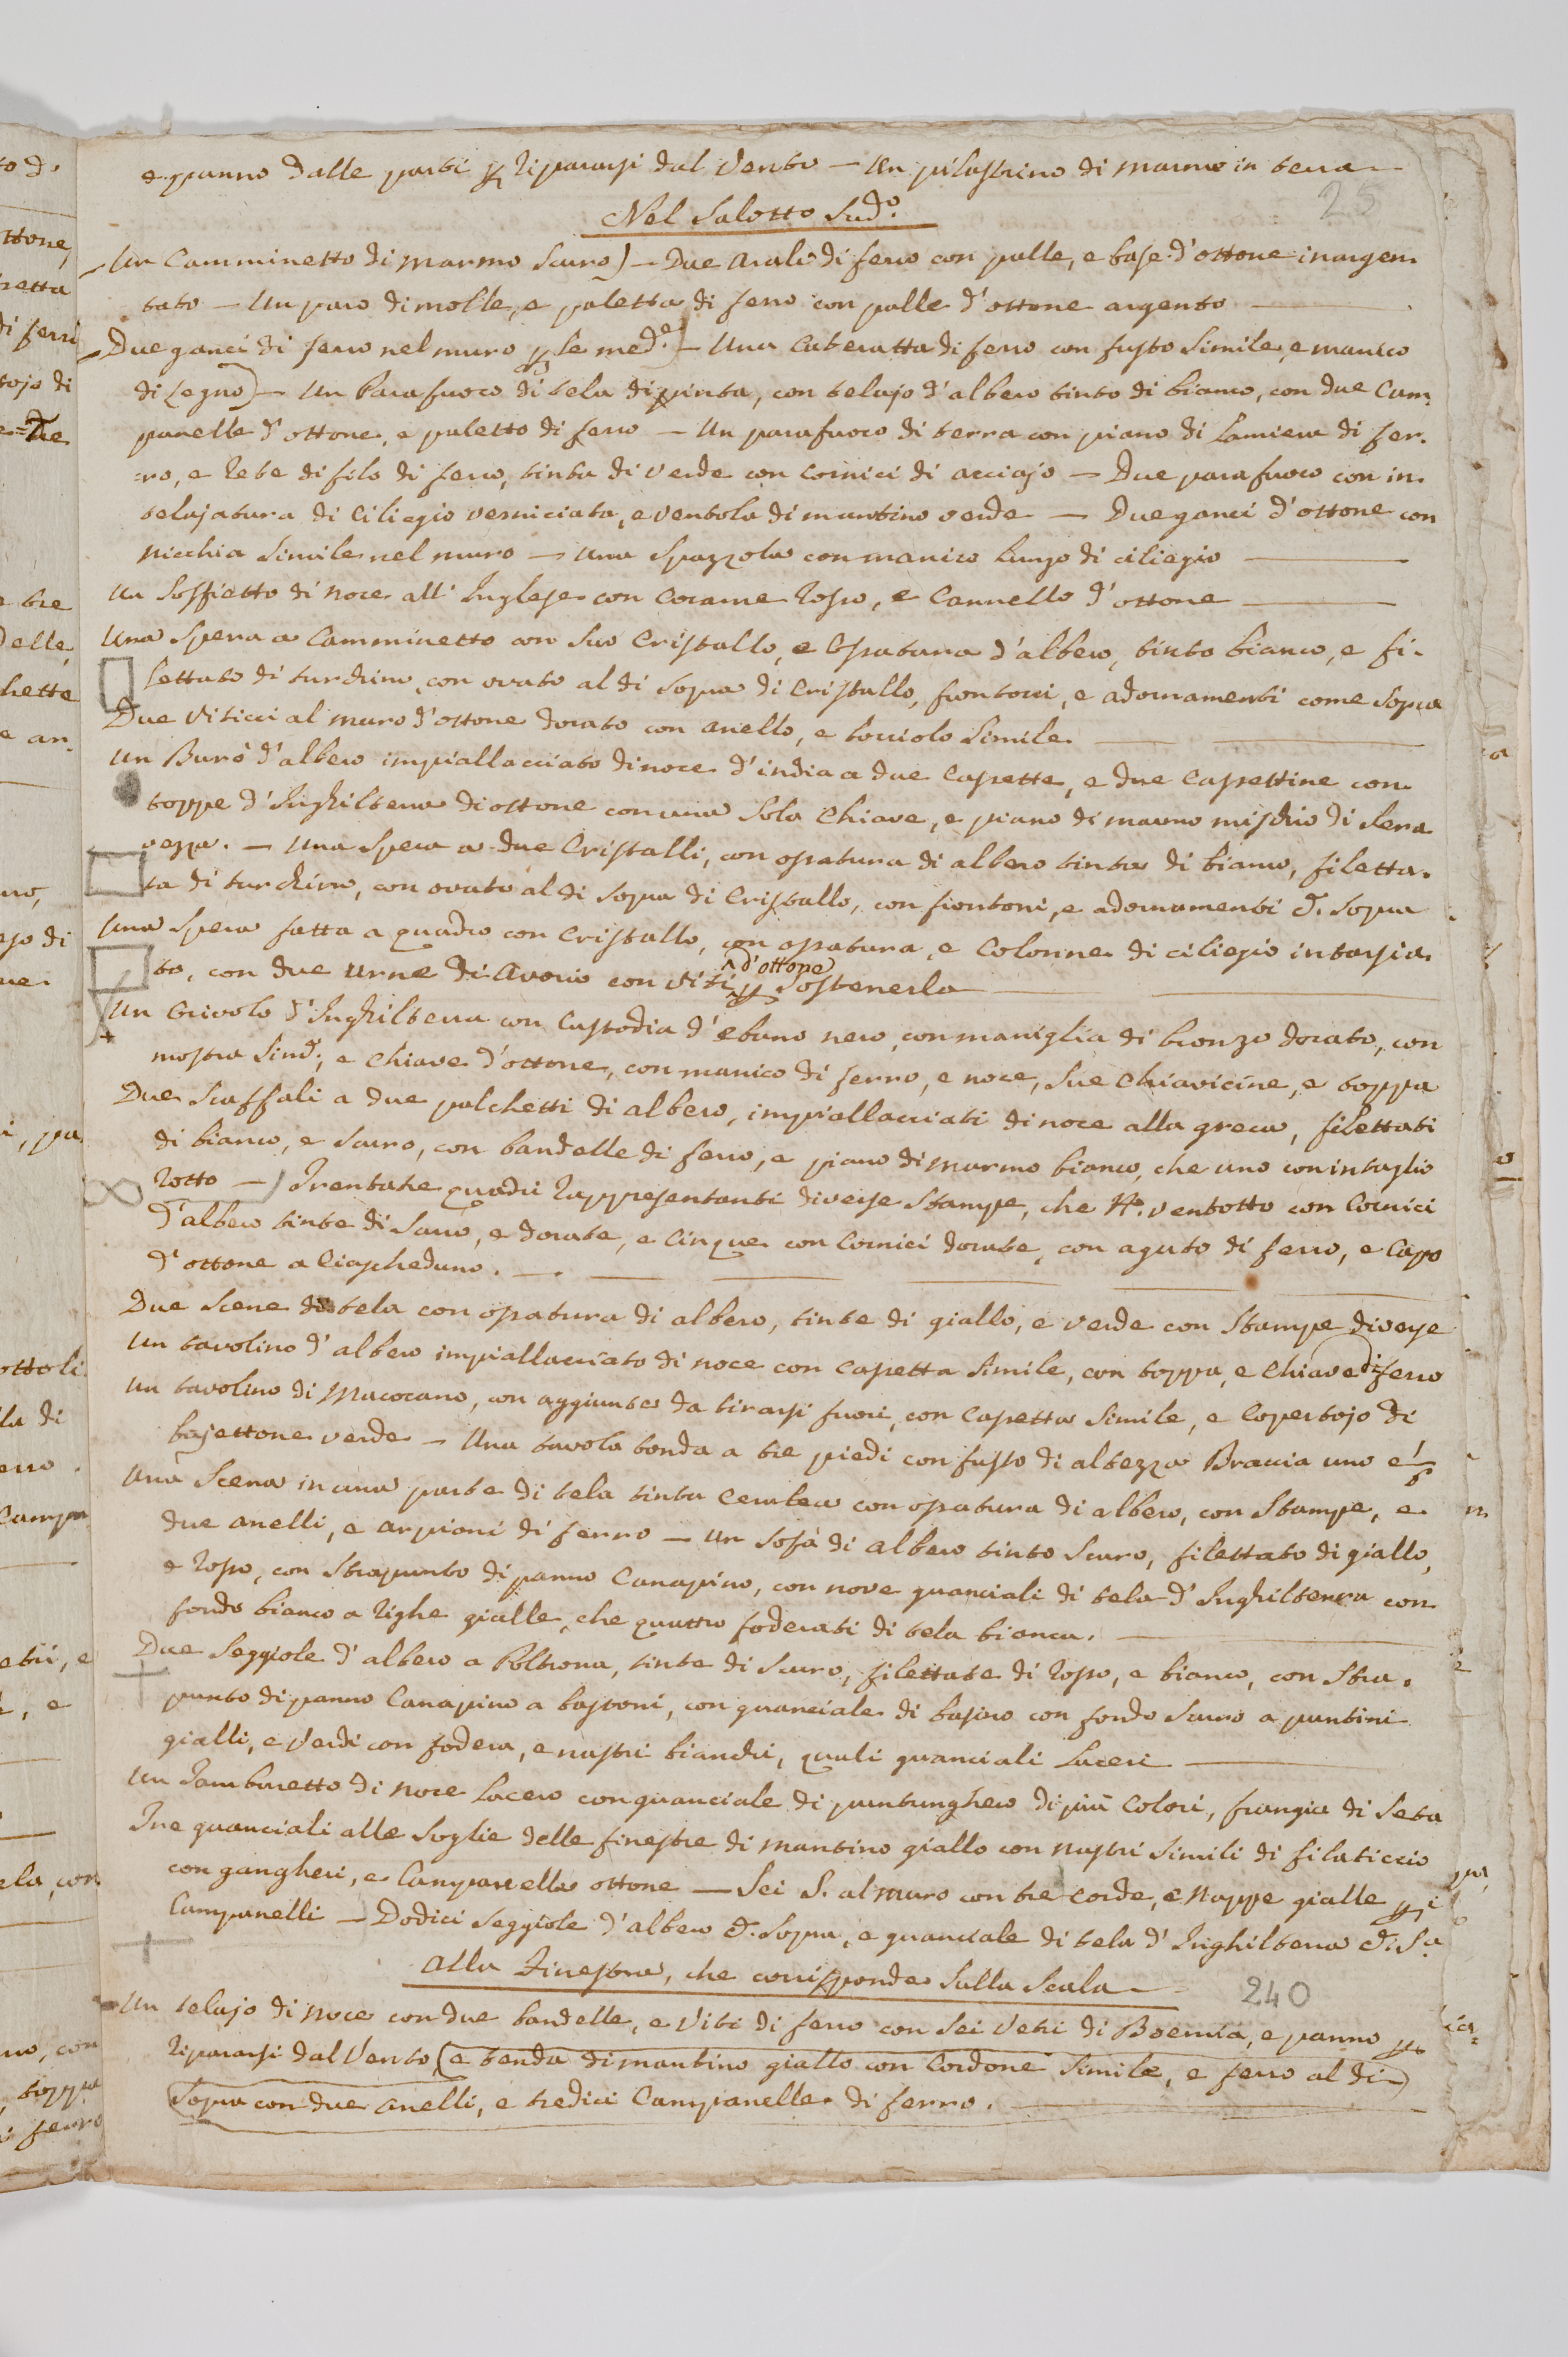 e panno dalle parti p ripararsi dal Vento — Un pilastrino di marmo in terra —
25
Nel Salotto Sud.o
Un Camminetto di marmo scuro) — Due arali di ferro con palle, e base d'ottone inargen
tato — Un paro di molle, e paletta di ferro con palle d'ottone argento
Due ganci di ferro nel muro p le med.e) — Una Cateratta di ferro con fusto simile, e manico
di legno) — Un Parafuoco di tela dipinta, con telajo d'albero tinto di bianco, con due Cam-
panelle d'ottone, e paletto di ferro — Un parafuoco di terra con piano di Lamiera di fer-
ro, e Rete di filo di ferro, tinta di verde con cornici di acciajo — Due parafuoco con in-
telajatura di Ciliegio verniciata, e ventola di mantino verde — Due ganci d'ottone con
nicchia simile nel muro — Una Spazzola con manico lungo di ciliegio
Un Soffietto di noce all'Inglese con Corame Rosso, e Cannello d'ottone
Una Spera a Camminetto con suo Cristallo, e Ossatura d'albero, tinto bianco, e fi-
lettato di turchino, con ovato al di sopra di Cristallo, frontoni, e adornamenti come sopra
Due Viticci al muro d'ottone dorato con anello, e bocciolo simile.
Un Burò d'albero impiallacciato di noce d'india a due Cassette, e due Cassettine con
toppe d'Inghilterra di ottone con una sola Chiave, e piano di marmo mischio di Sera
vezza. — Una Spera a due Cristalli, con ossatura di albero tinta di bianco, filetta-
ta di turchino, con ovato al di sopra di Cristallo, con frontoni, e adornamenti d. sopra
Una Spera fatta a quadro con Cristallo, con ossatura, e Colonne di ciliegio intarsia-
to, con due urne di avorio con viti d'ottone p sostenerla
Un Orivolo d'Inghilterra con Custodia d'ebano nero, con maniglia di bronzo dorato, con
mostra Sind., e Chiave d'ottone, con manico di ferro, e noce, sue Chiavicine, e toppa
Due Scaffali a due palchetti di albero, impiallacciati di noce alla greca, filettati
di bianco, e scuro, con bandelle di ferro, e piano di marmo bianco, che uno con intaglio
Rotto —) Trentatre quadri Rappresentanti diverse Stampe, che N.o ventotto con Cornici
d'albero tinte di Scuro, e dorate, e Cinque con Cornici dorate, con aguto di ferro, e Capo
d'ottone a Ciascheduno.
Due Scene di tela con ossatura di albero, tinte di giallo, e verde con Stampe diverse
Un tavolino d'albero impiallacciato di noce con Cassetta simile, con toppa, e Chiave di ferro
Un tavolino di Macocano, con aggiunte da tirarsi fuori, con Cassetta simile, e Copertojo di
bajettone verde — Una tavola tonda a tre piedi con fusto di altezza Braccia uno e 1/6
Una Scena in una parte di tela tinta Cerulea con ossatura di albero, con Stampe, e
due anelli, e arpioni di ferro — Un sofà di albero tinto Scuro, filettato di giallo,
e Rosso, con Strapunto di panno Canapino, con nove guanciali di tela d'Inghilterra con
fondo bianco a Righe gialle, che quattro foderati di tela bianca.
Due Seggiole d'albero a Poltrona, tinte di Scuro, filettate di Rosso, e bianco, con Stra-
punto di panno Canapino a bastoni, con guanciale di basino con fondo Scuro a puntini
gialli, e Verdi con fodera, e nastri bianchi, quali guanciali laceri
Un Tamburetto di noce lacero con guanciale di puntunghero di più Colori, frangia di Seta
Tre guanciali alle Soglie delle finestre di mantino giallo con nastri simili di filaticcio
con gangheri, e Campanelle ottone — Sei S. al muro con tre corde, e Nappe gialle p i
Campanelli — Dodici Seggiole d'albero d. sopra, e guanciale di tela d'Inghilterra d. S.a
Alla Finestra, che corrisponde sulla Scala
240
Un telajo di noce con due bandelle, e Viti di ferro con sei Vetri di Boemia, e panno p
ripararsi dal Vento, (e tenda di mantino giallo con Cordone simile, e ferro al di
sopra con due anelli, e tredici Campanelle di ferro.